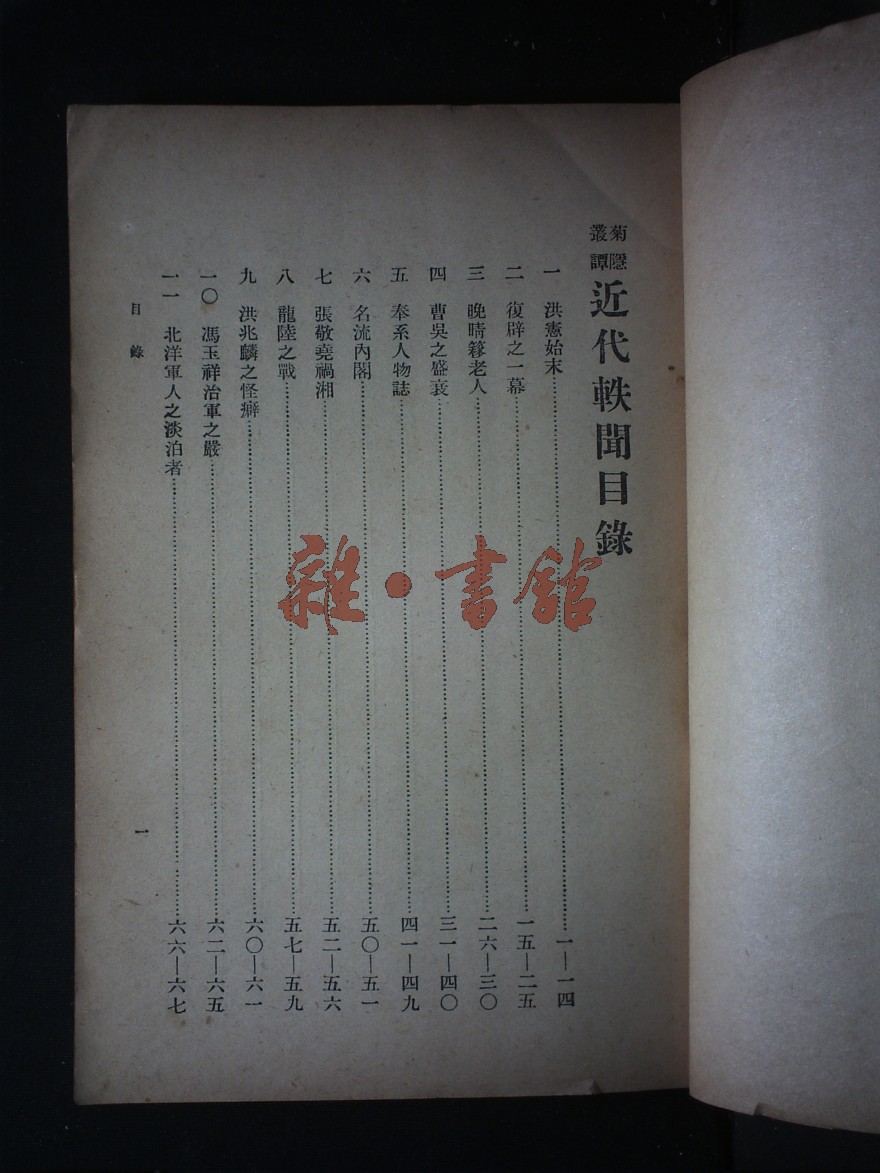 菊隱叢譚 近代軼聞目錄
一 洪憲始末……一—一四
二 復辟之一幕……一五—二五
三 晚晴簃老人……二六—三〇
四 曹吳之盛衰……三一—四〇
五 奉系人物誌……四一—四九
六 名流內閣……五〇—五一
七 張敬堯禍湘……五二—五六
八 龍陸之戰……五七—五九
九 洪兆麟之怪癖……六〇—六一
一〇 馮玉祥治軍之嚴……六二—六五
一一 北洋軍人之淡泊者……六六—六七
目錄 一
雜·書館